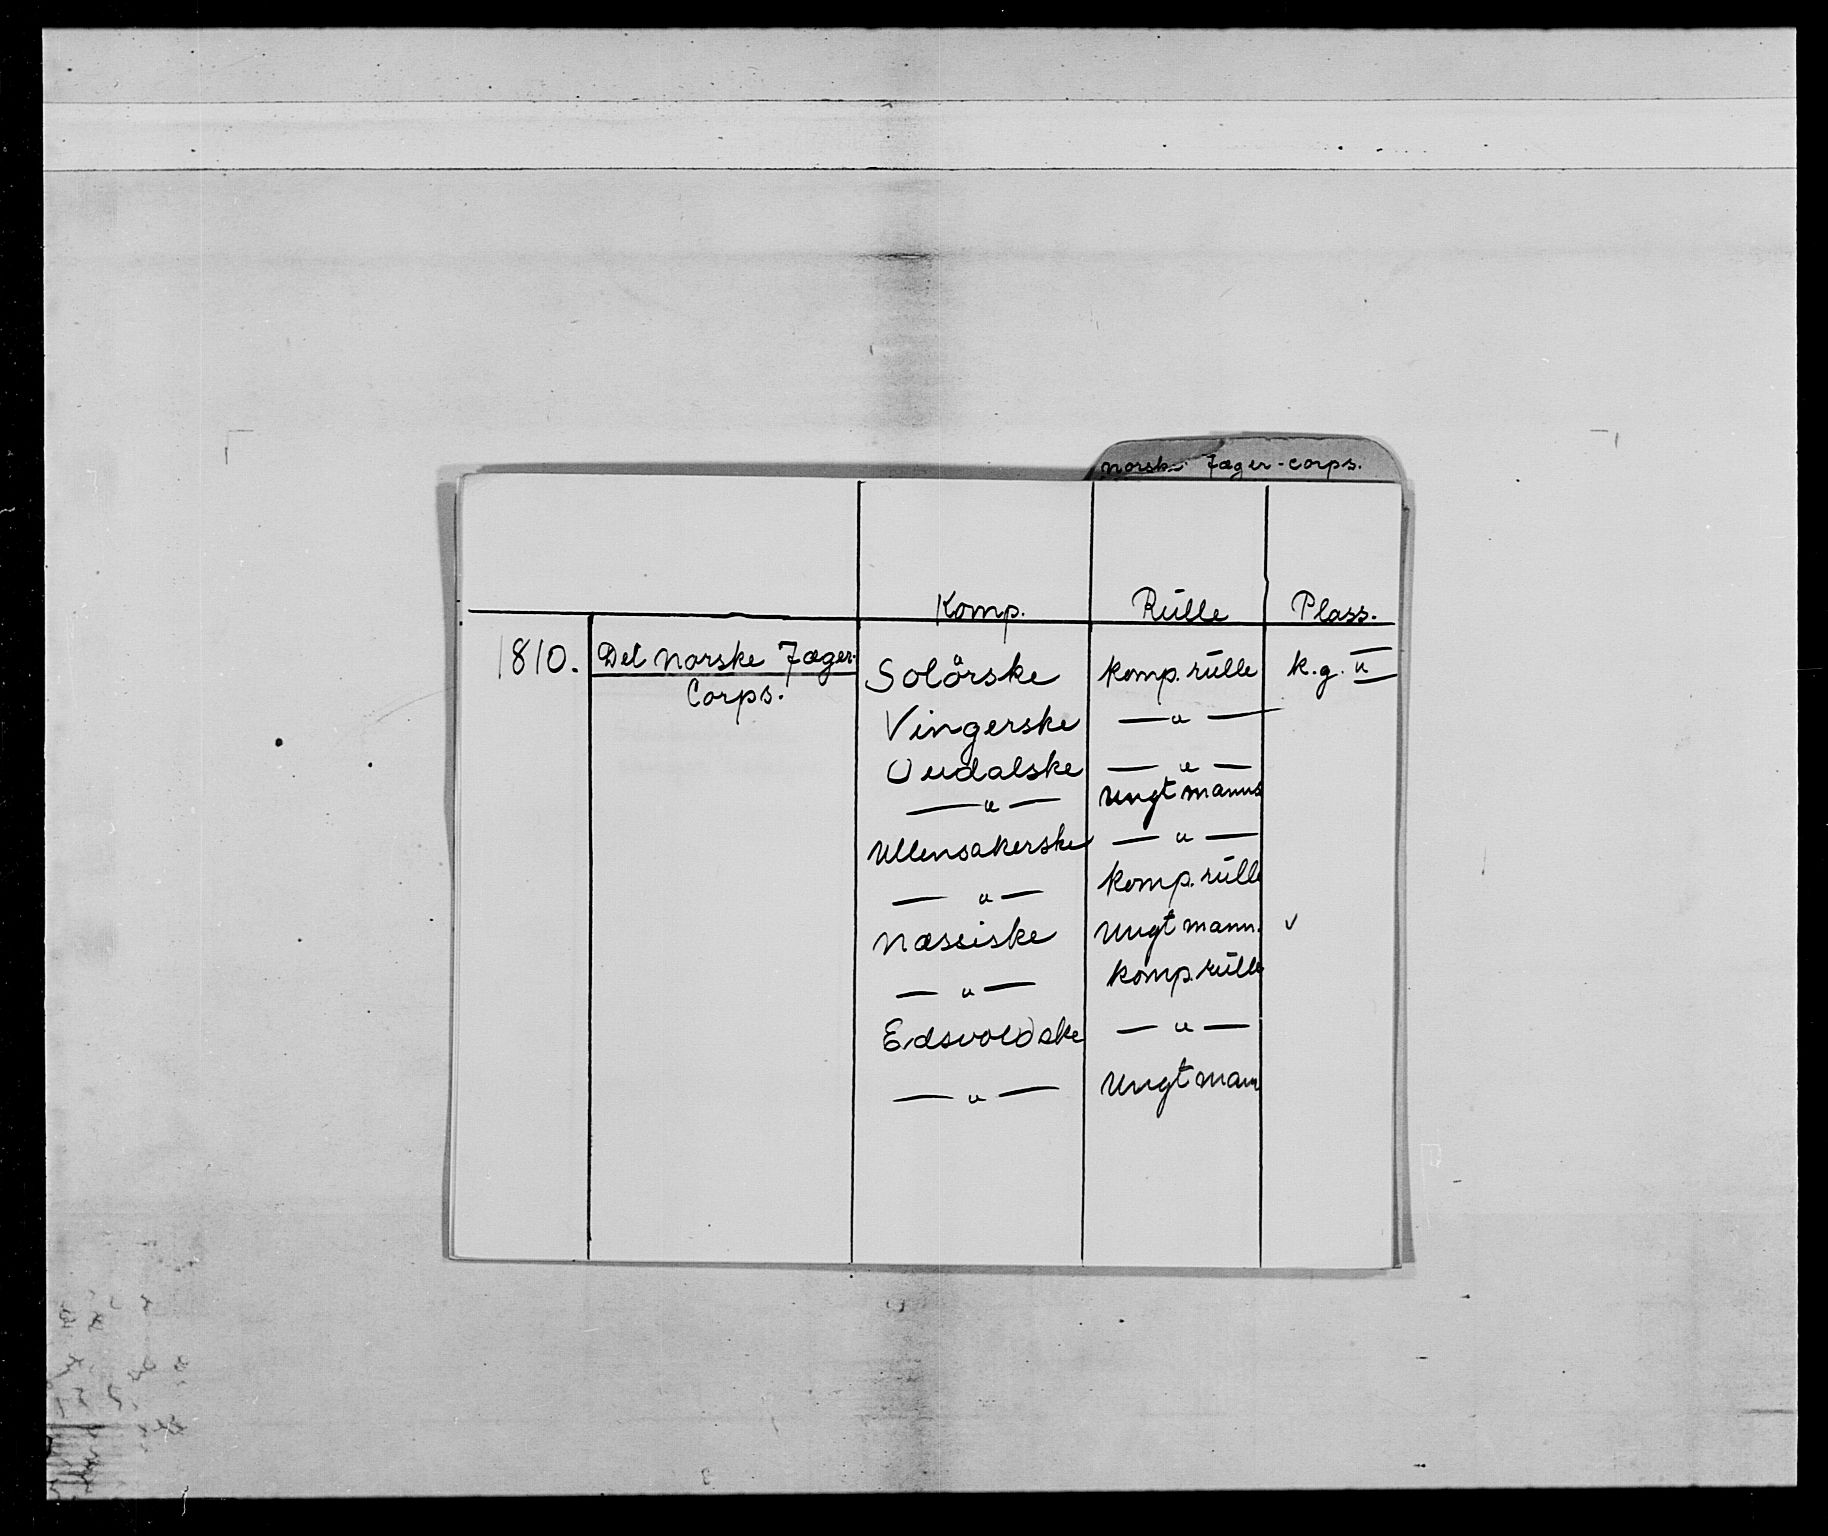 Norske Jæger-corps.
Komp. Rülle Plass.
1810. Det norske Jæger- Solörske komp. rülle k.g. II
Corps.
Vingerske — " —
Oudalske — " —
— " — Ungt manns
Ullensakerske — " —
— " — komp. rülle
Næssiske Ungt mann. v
— " — komp. rülle
Edsvoldske — " —
— " — Ungt mann